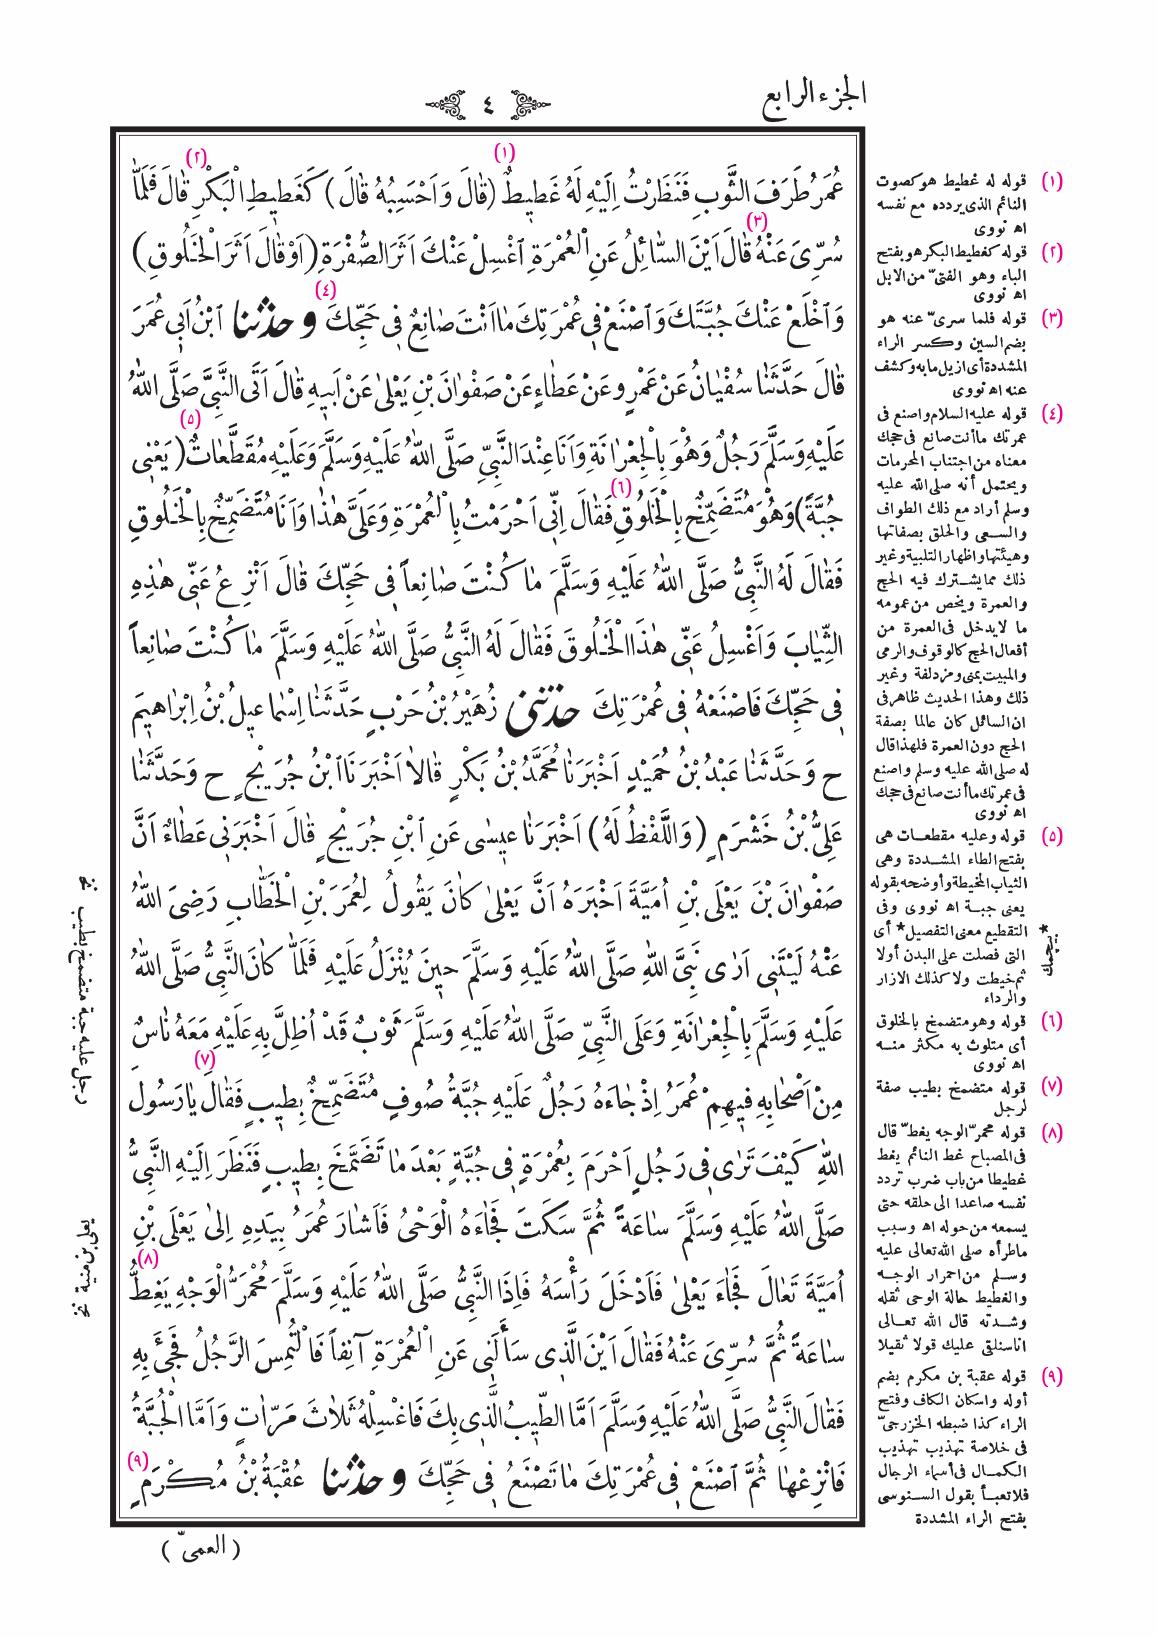 الجزء الرابع
٤
عُمَرُ طَرَفَ الثَّوْبِ فَنَظَرْتُ اِلَيْهِ لَهُ غَطِيطٌ (قَالَ وَاَحْسِبُهُ قَالَ) كَغَطِيطِ الْبَكْرِ قَالَ فَلَمَّا
سُرِّىَ عَنْهُ قَالَ اَيْنَ السَّائِلُ عَنِ الْعُمْرَةِ اَغْسِلْ عَنْكَ اَثَرَ الصُّفْرَةِ (اَوْ قَالَ اَثَرَ الْخَلُوقِ)
وَاَخْلَعْ عَنْكَ جُبَّتَكَ وَاَصْنَعْ فِى عُمْرَتِكَ مَا اَنْتَ صَانِعٌ فِى حَجِّكَ وحدثنا ابْنُ اَبِى عُمَرَ
قَالَ حَدَّثَنَا سُفْيَانُ عَنْ عَمْرٍو عَنْ عَطَاءٍ عَنْ صَفْوَانَ بْنِ يَعْلىٰ عَنْ اَبِيهِ قَالَ اَتَى النَّبِىَّ صَلَّى اللهُ
عَلَيْهِ وَسَلَّمَ رَجُلٌ وَهُوَ بِالْجِعْرَانَةِ وَاَنَا عِنْدَ النَّبِىِّ صَلَّى اللهُ عَلَيْهِ وَسَلَّمَ وَعَلَيْهِ مُقَطَّعَاتٌ (يَعْنِى
جُبَّةً) وَهُوَ مُتَضَمِّخٌ بِالْخَلُوقِ فَقَالَ اِنِّى اَحْرَمْتُ بِالْعُمْرَةِ وَعَلَىَّ هٰذَا وَاَنَا مُتَضَمِّخٌ بِالْخَلُوقِ
فَقَالَ لَهُ النَّبِىُّ صَلَّى اللهُ عَلَيْهِ وَسَلَّمَ مَا كُنْتَ صَانِعاً فِى حَجِّكَ قَالَ اَنْزِعُ عَنِّى هٰذِهِ
الثِّيَابَ وَاَغْسِلُ عَنِّى هٰذَا الْخَلُوقَ فَقَالَ لَهُ النَّبِىُّ صَلَّى اللهُ عَلَيْهِ وَسَلَّمَ مَا كُنْتَ صَانِعاً
فِى حَجِّكَ فَاصْنَعْهُ فِى عُمْرَتِكَ حدثنى زُهَيْرُ بْنُ حَرْبٍ حَدَّثَنَا اِسْمَاعِيلُ بْنُ اِبْرَاهِيمَ
ح وَحَدَّثَنَا عَبْدُ بْنُ حُمَيْدٍ اَخْبَرَنَا مُحَمَّدُ بْنُ بَكْرٍ قَالاَ اَخْبَرَنَا ابْنُ جُرَيْجٍ ح وَحَدَّثَنَا
عَلِىُّ بْنُ خَشْرَمٍ (وَاللَّفْظُ لَهُ) اَخْبَرَنَا عِيسٰى عَنِ ابْنِ جُرَيْجٍ قَالَ اَخْبَرَنِى عَطَاءٌ اَنَّ
صَفْوَانَ بْنَ يَعْلَى بْنِ اُمَيَّةَ اَخْبَرَهُ اَنَّ يَعْلىٰ كَانَ يَقُولُ لِعُمَرَ بْنِ الْخَطَّابِ رَضِىَ اللهُ
عَنْهُ لَيْتَنِى اَرٰى نَبِىَّ اللهِ صَلَّى اللهُ عَلَيْهِ وَسَلَّمَ حِينَ يُنْزَلُ عَلَيْهِ فَلَمَّا كَانَ النَّبِىُّ صَلَّى اللهُ
عَلَيْهِ وَسَلَّمَ بِالْجِعْرَانَةِ وَعَلَى النَّبِىِّ صَلَّى اللهُ عَلَيْهِ وَسَلَّمَ ثَوْبٌ قَدْ اُظِلَّ بِهِ عَلَيْهِ مَعَهُ نَاسٌ
مِنْ اَصْحَابِهِ فِيهِمْ عُمَرُ اِذْ جَاءَهُ رَجُلٌ عَلَيْهِ جُبَّةُ صُوفٍ مُتَضَمِّخٌ بِطِيبٍ فَقَالَ يَا رَسُولَ
اللهِ كَيْفَ تَرٰى فِى رَجُلٍ اَحْرَمَ بِعُمْرَةٍ فِى جُبَّةٍ بَعْدَ مَا تَضَمَّخَ بِطِيبٍ فَنَظَرَ اِلَيْهِ النَّبِىُّ
صَلَّى اللهُ عَلَيْهِ وَسَلَّمَ سَاعَةً ثُمَّ سَكَتَ فَجَاءَهُ الْوَحْىُ فَاَشَارَ عُمَرُ بِيَدِهِ اِلىٰ يَعْلَى بْنِ
اُمَيَّةَ تَعَالَ فَجَاءَ يَعْلىٰ فَاَدْخَلَ رَأْسَهُ فَاِذَا النَّبِىُّ صَلَّى اللهُ عَلَيْهِ وَسَلَّمَ مُحْمَرُّ الْوَجْهِ يَغِطُّ
سَاعَةً ثُمَّ سُرِّىَ عَنْهُ فَقَالَ اَيْنَ الَّذِى سَأَلَنِى عَنِ الْعُمْرَةِ آنِفاً فَالْتُمِسَ الرَّجُلُ فَجِىءَ بِهِ
فَقَالَ النَّبِىُّ صَلَّى اللهُ عَلَيْهِ وَسَلَّمَ اَمَّا الطِّيبُ الَّذِى بِكَ فَاغْسِلْهُ ثَلاَثَ مَرَّاتٍ وَاَمَّا الْجُبَّةُ
فَانْزِعْهَا ثُمَّ اصْنَعْ فِى عُمْرَتِكَ مَا تَصْنَعُ فِى حَجِّكَ وحدثنا عُقْبَةُ بْنُ مُكْرَمٍ
(العمىّ)
(١) قوله له غطيط هو كصوت
النائم الذى يردده مع نفسه
اه نووى
(٢) قوله كغطيط البكر هو بفتح
الباء وهو الفتىّ من الابل
اه نووى
(٣) قوله فلما سرىّ عنه هو
بضم السين وكسر الراء
المشددة أى ازيل ما به وكشف
عنه اه نووى
(٤) قوله عليه السلام واصنع فى
عمرتك ما أنت صانع فى حجك
معناه من اجتناب المحرمات
ويحتمل أنه صلى الله عليه
وسلم أراد مع ذلك الطواف
والسعى والحلق بصفاتها
وهيئتها واظهار التلبية وغير
ذلك مما يشترك فيه الحج
والعمرة ويخص من عمومه
ما لا يدخل فى العمرة من
أفعال الحج كالوقوف والرمى
والمبيت بمنى ومزدلفة وغير
ذلك وهذا الحديث ظاهر فى
ان السائل كان عالما بصفة
الحج دون العمرة فلهذا قال
له صلى الله عليه وسلم واصنع
فى عمرتك ما أنت صانع فى حجك
اه نووى
(٥) قوله وعليه مقطعات هى
بفتح الطاء المشددة وهى
الثياب المخيطة وأوضحه بقوله
يعنى جبة اه نووى وفى
التقطيع معنى التفصيل* أى
التى فصلت على البدن أولا
ثم خيطت ولا كذلك الازار
والرداء
(٦) قوله وهو متضمخ بالخلوق
أى متلوث به مكثر منه
اه نووى
(٧) قوله متضمخ بطيب صفة
لرجل
(٨) قوله محمرّ الوجه يغطّ قال
فى المصباح غط النائم يغط
غطيطا من باب ضرب تردد
نفسه صاعدا الى حلقه حتى
يسمعه من حوله اه وسبب
ماطرأه صلى الله تعالى عليه
وسلم من احمرار الوجه
والغطيط حالة الوحى ثقله
وشدته قال الله تعالى
انا سنلقى عليك قولا ثقيلا
(٩) قوله عقبة بن مكرم بضم
أوله واسكان الكاف وفتح
الراء كذا ضبطه الخزرجىّ
فى خلاصة تهذيب تهذيب
الكمال فى أسماء الرجال
فلا تعبأ بقول السنوسى
بفتح الراء المشددة
رجل عليه جبة متضمخ بطيب نخ